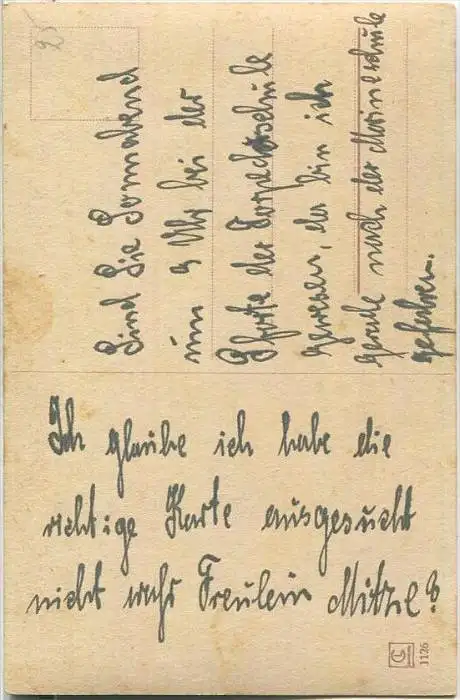 Ich glaube ich habe die
richtige Karte ausgesucht
nicht wahr Freulein Mitzel?
Sind Sie Sonnabend
um 9 Uhr bei der
Pforte der Torpedoschule
gewesen, da bin ich
gerade nach der Marineschule
gefahren.
25
G
1126